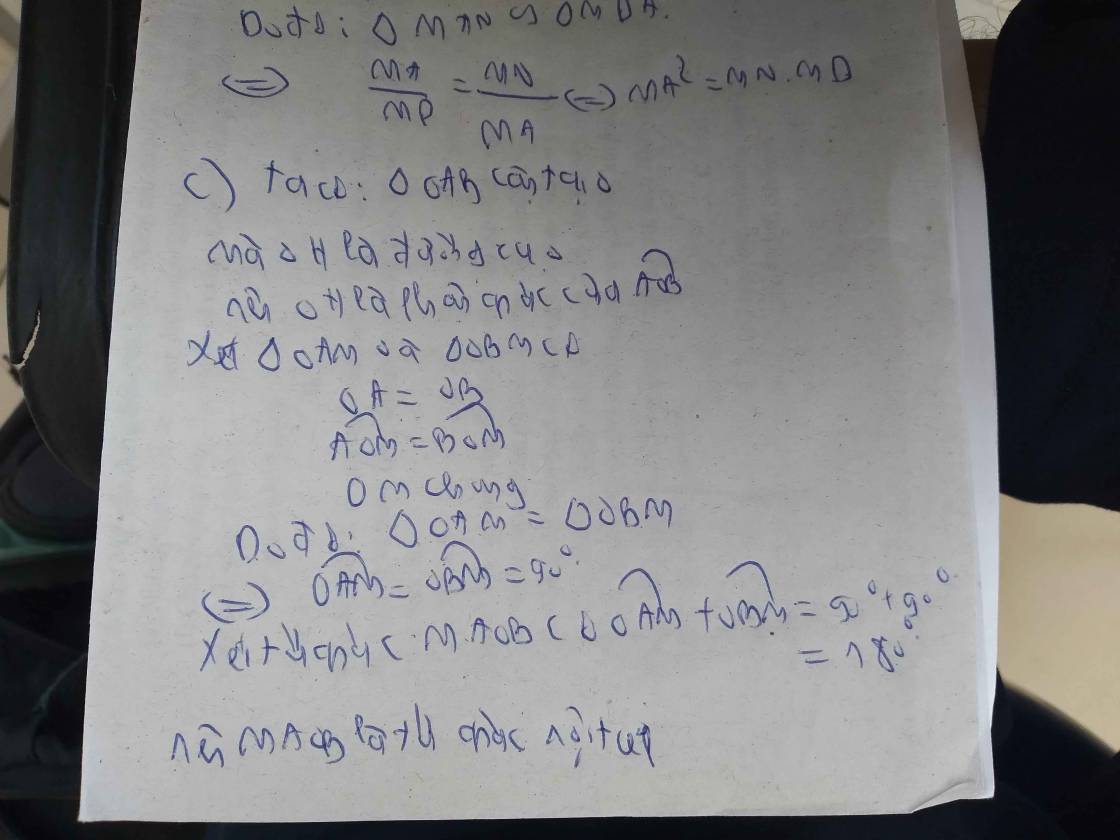 Do đó: Δ MAN ∽ Δ MDA.
<=> MA/MD = MN/MA <=> MA² = MN.MD
c) ta có: Δ OAB cân tại O
mà OH là đường cao
nên OH là phân giác của AOB
Xét Δ OAM và Δ OBM có
OA = OB
AOM = BOM
OM chung
Do đó: Δ OAM = Δ OBM
<=> OAM = OBM = 90°
Xét tứ giác MAOB có OAM + OBM = 90° + 90°
= 180°
nên MAOB là tứ giác nội tiếp